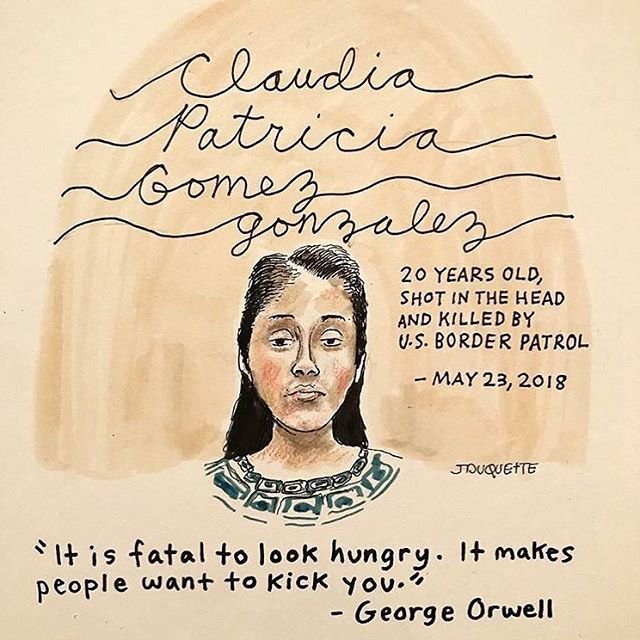 Claudia
Patricia
Gomez
gonzalez
20 YEARS OLD,
SHOT IN THE HEAD
AND KILLED BY
U.S. BORDER PATROL
- MAY 23, 2018
JDUQUETTE
"It is fatal to look hungry. It makes
people want to kick you."
- George Orwell